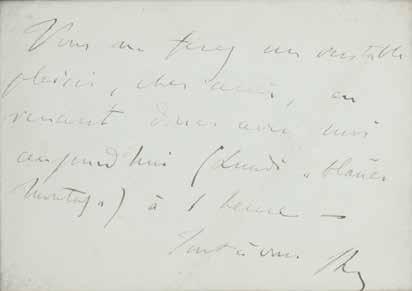 Vous me ferez un véritable
plaisir, cher ami, en
venant diner avec moi
aujourd'hui (Lundi „blauer
Montag“) à 1 heure –
Tout à vous